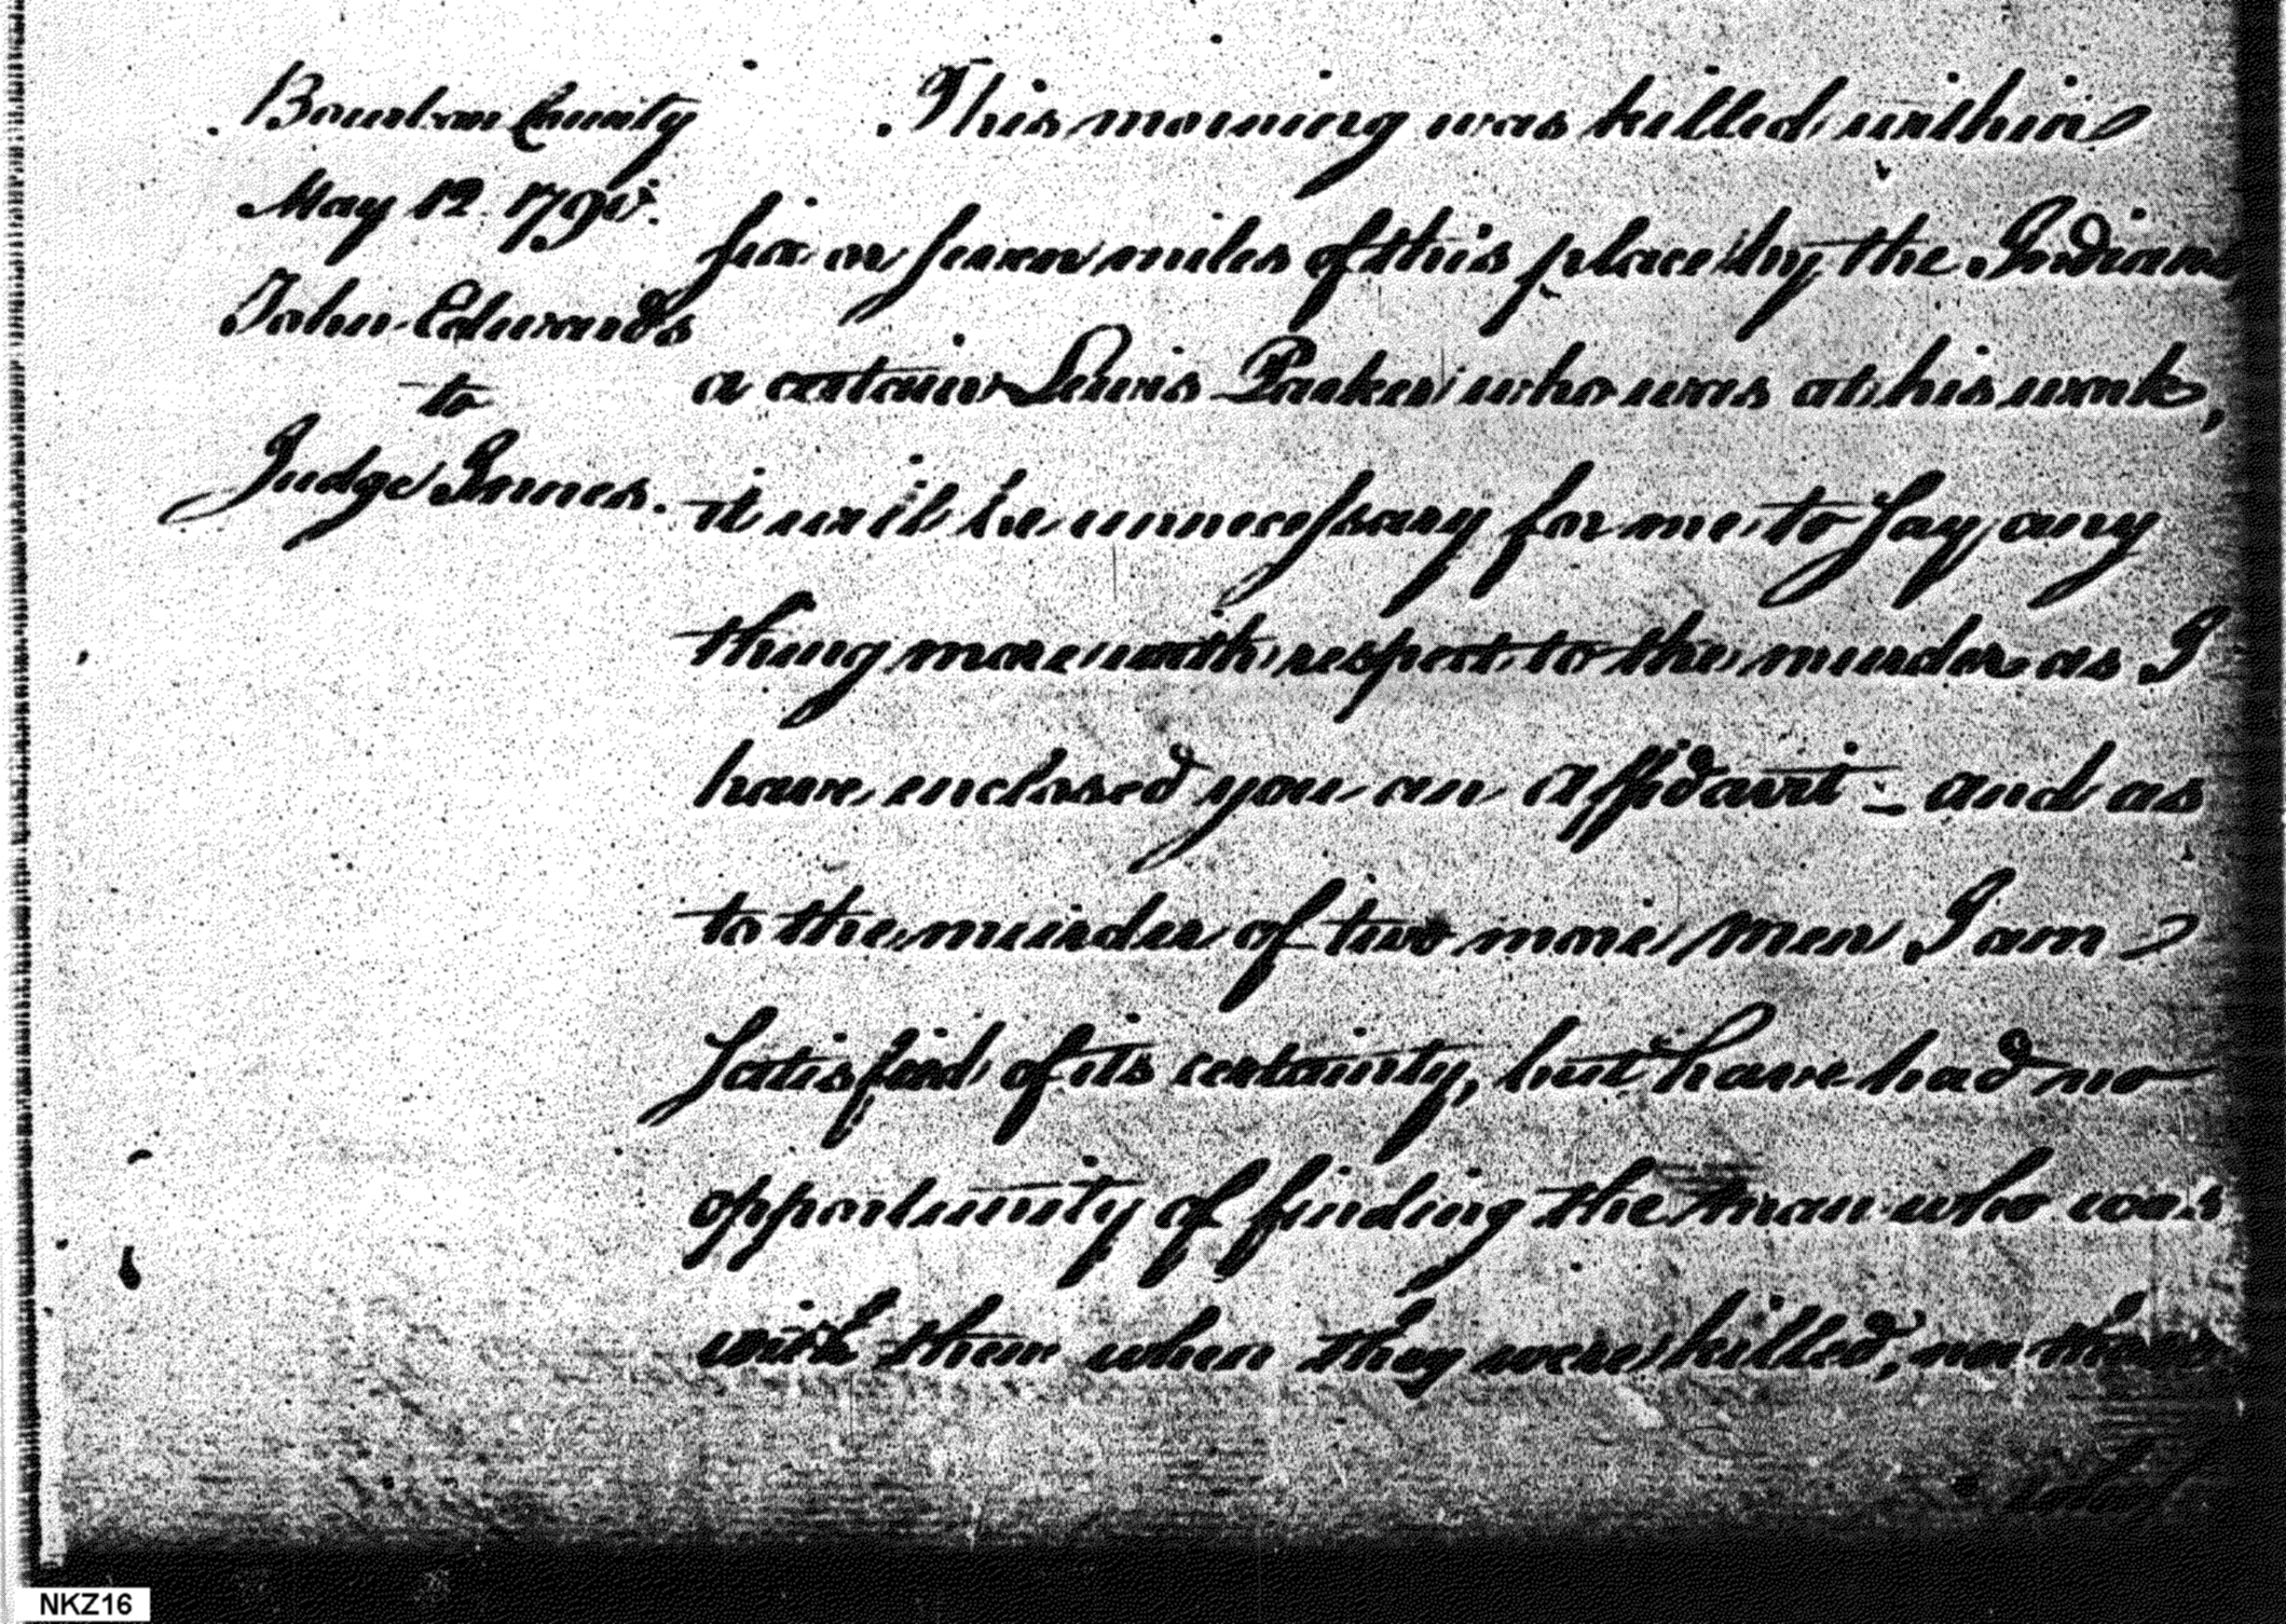 Bourbon County
May 12. 1790.
John Edwards
to
Judge Innes.
This morning was killed within
six or seven miles of this place by the Indians
a certain Lewis Parker who was at his work,
it will be unnecessary for me to say any
thing more with respect to the murder as I
have enclosed you an affidavit - and as
to the murder of two more men I am
satisfied of its certainty, but have had no
opportunity of finding the man who was
with them when they were killed, nor
NKZ16